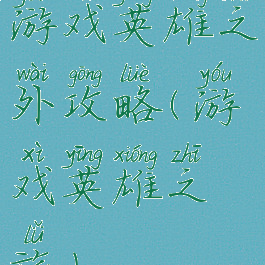 游戏英雄之
wài gōng lüè yóu
外攻略(游
xì yīng xióng zhī
戏英雄之
lǚ